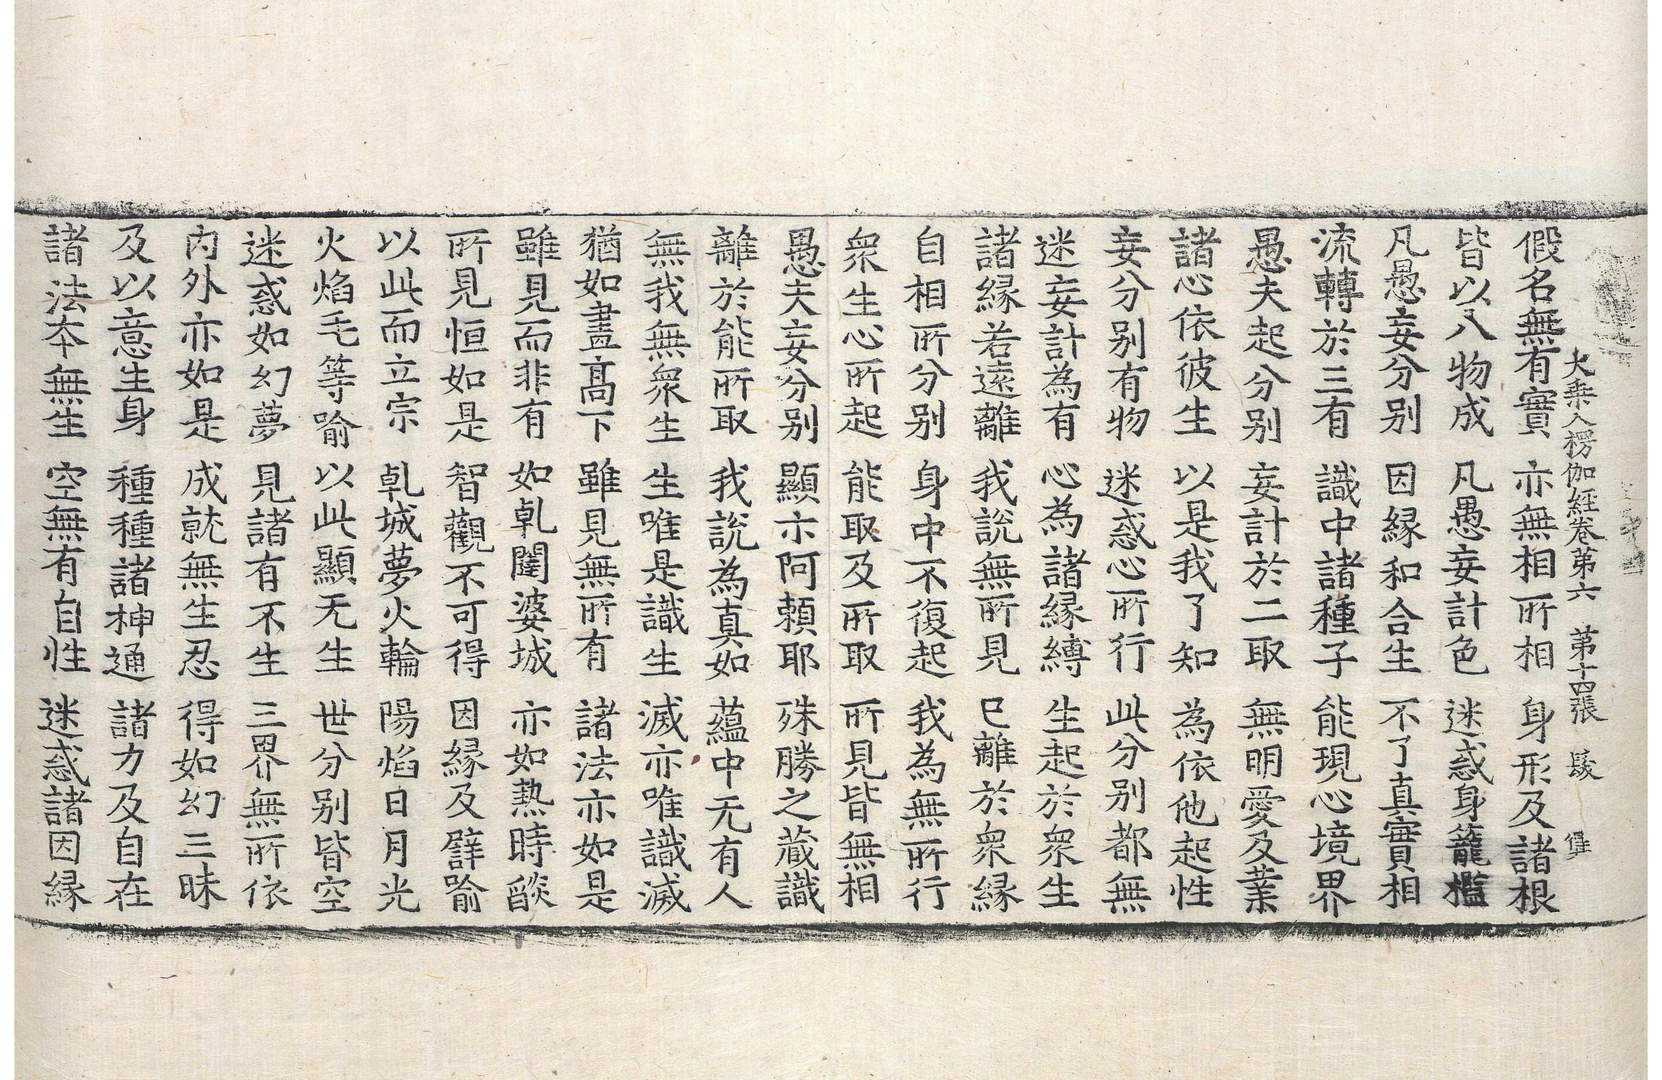 大乘入楞伽經卷第六 第十四張 䯼
假名無有實 亦無相所相 身形及諸根
皆以八物成 凡愚妄計色 迷惑身籠檻
凡愚妄分别 因縁和合生 不了真實相
流轉於三有 識中諸種子 能現心境界
愚夫起分别 妄計於二取 無明愛及業
諸心依彼生 以是我了知 為依他起性
妄分别有物 迷惑心所行 此分别都無
迷妄計為有 心為諸縁縛 生起於衆生
諸縁若遠離 我說無所見 已離於衆縁
自相所分别 身中不復起 我為無所行
衆生心所起 能取及所取 所見皆無相
愚夫妄分别 顯示阿頼耶 殊勝之蔵識
離於能所取 我說為真如 蘊中无有人
無我無衆生 生唯是識生 滅亦唯識滅
猶如畫髙下 雖見無所有 諸法亦如是
雖見而非有 如乹闥婆城 亦如熱時燄
所見恒如是 智觀不可得 因縁及譬喻
以此而立宗 乹城夢火輪 陽焰日月光
火焰毛等喻 以此顯无生 世分别皆空
迷惑如幻夢 見諸有不生 三界無所依
内外亦如是 成就無生忍 得如幻三昧
及以意生身 種種諸神通 諸力及自在
諸法夲無生 空無有自性 迷惑諸因縁